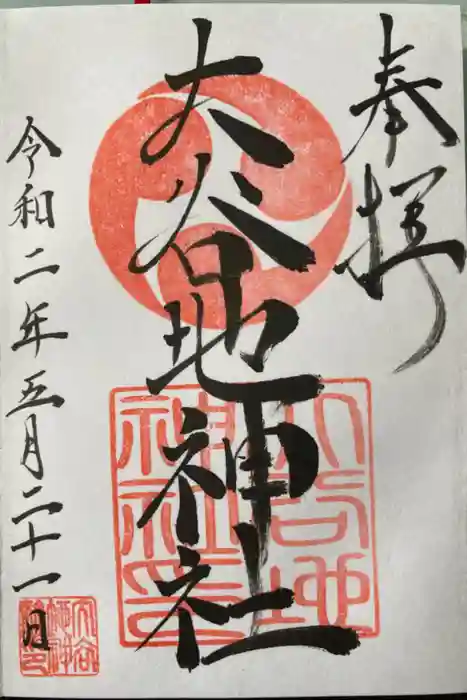 奉拝
大谷地神社
令和二年五月二十一日
大谷地
神社印